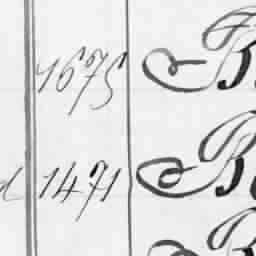 1675 B
d 1471 B
B